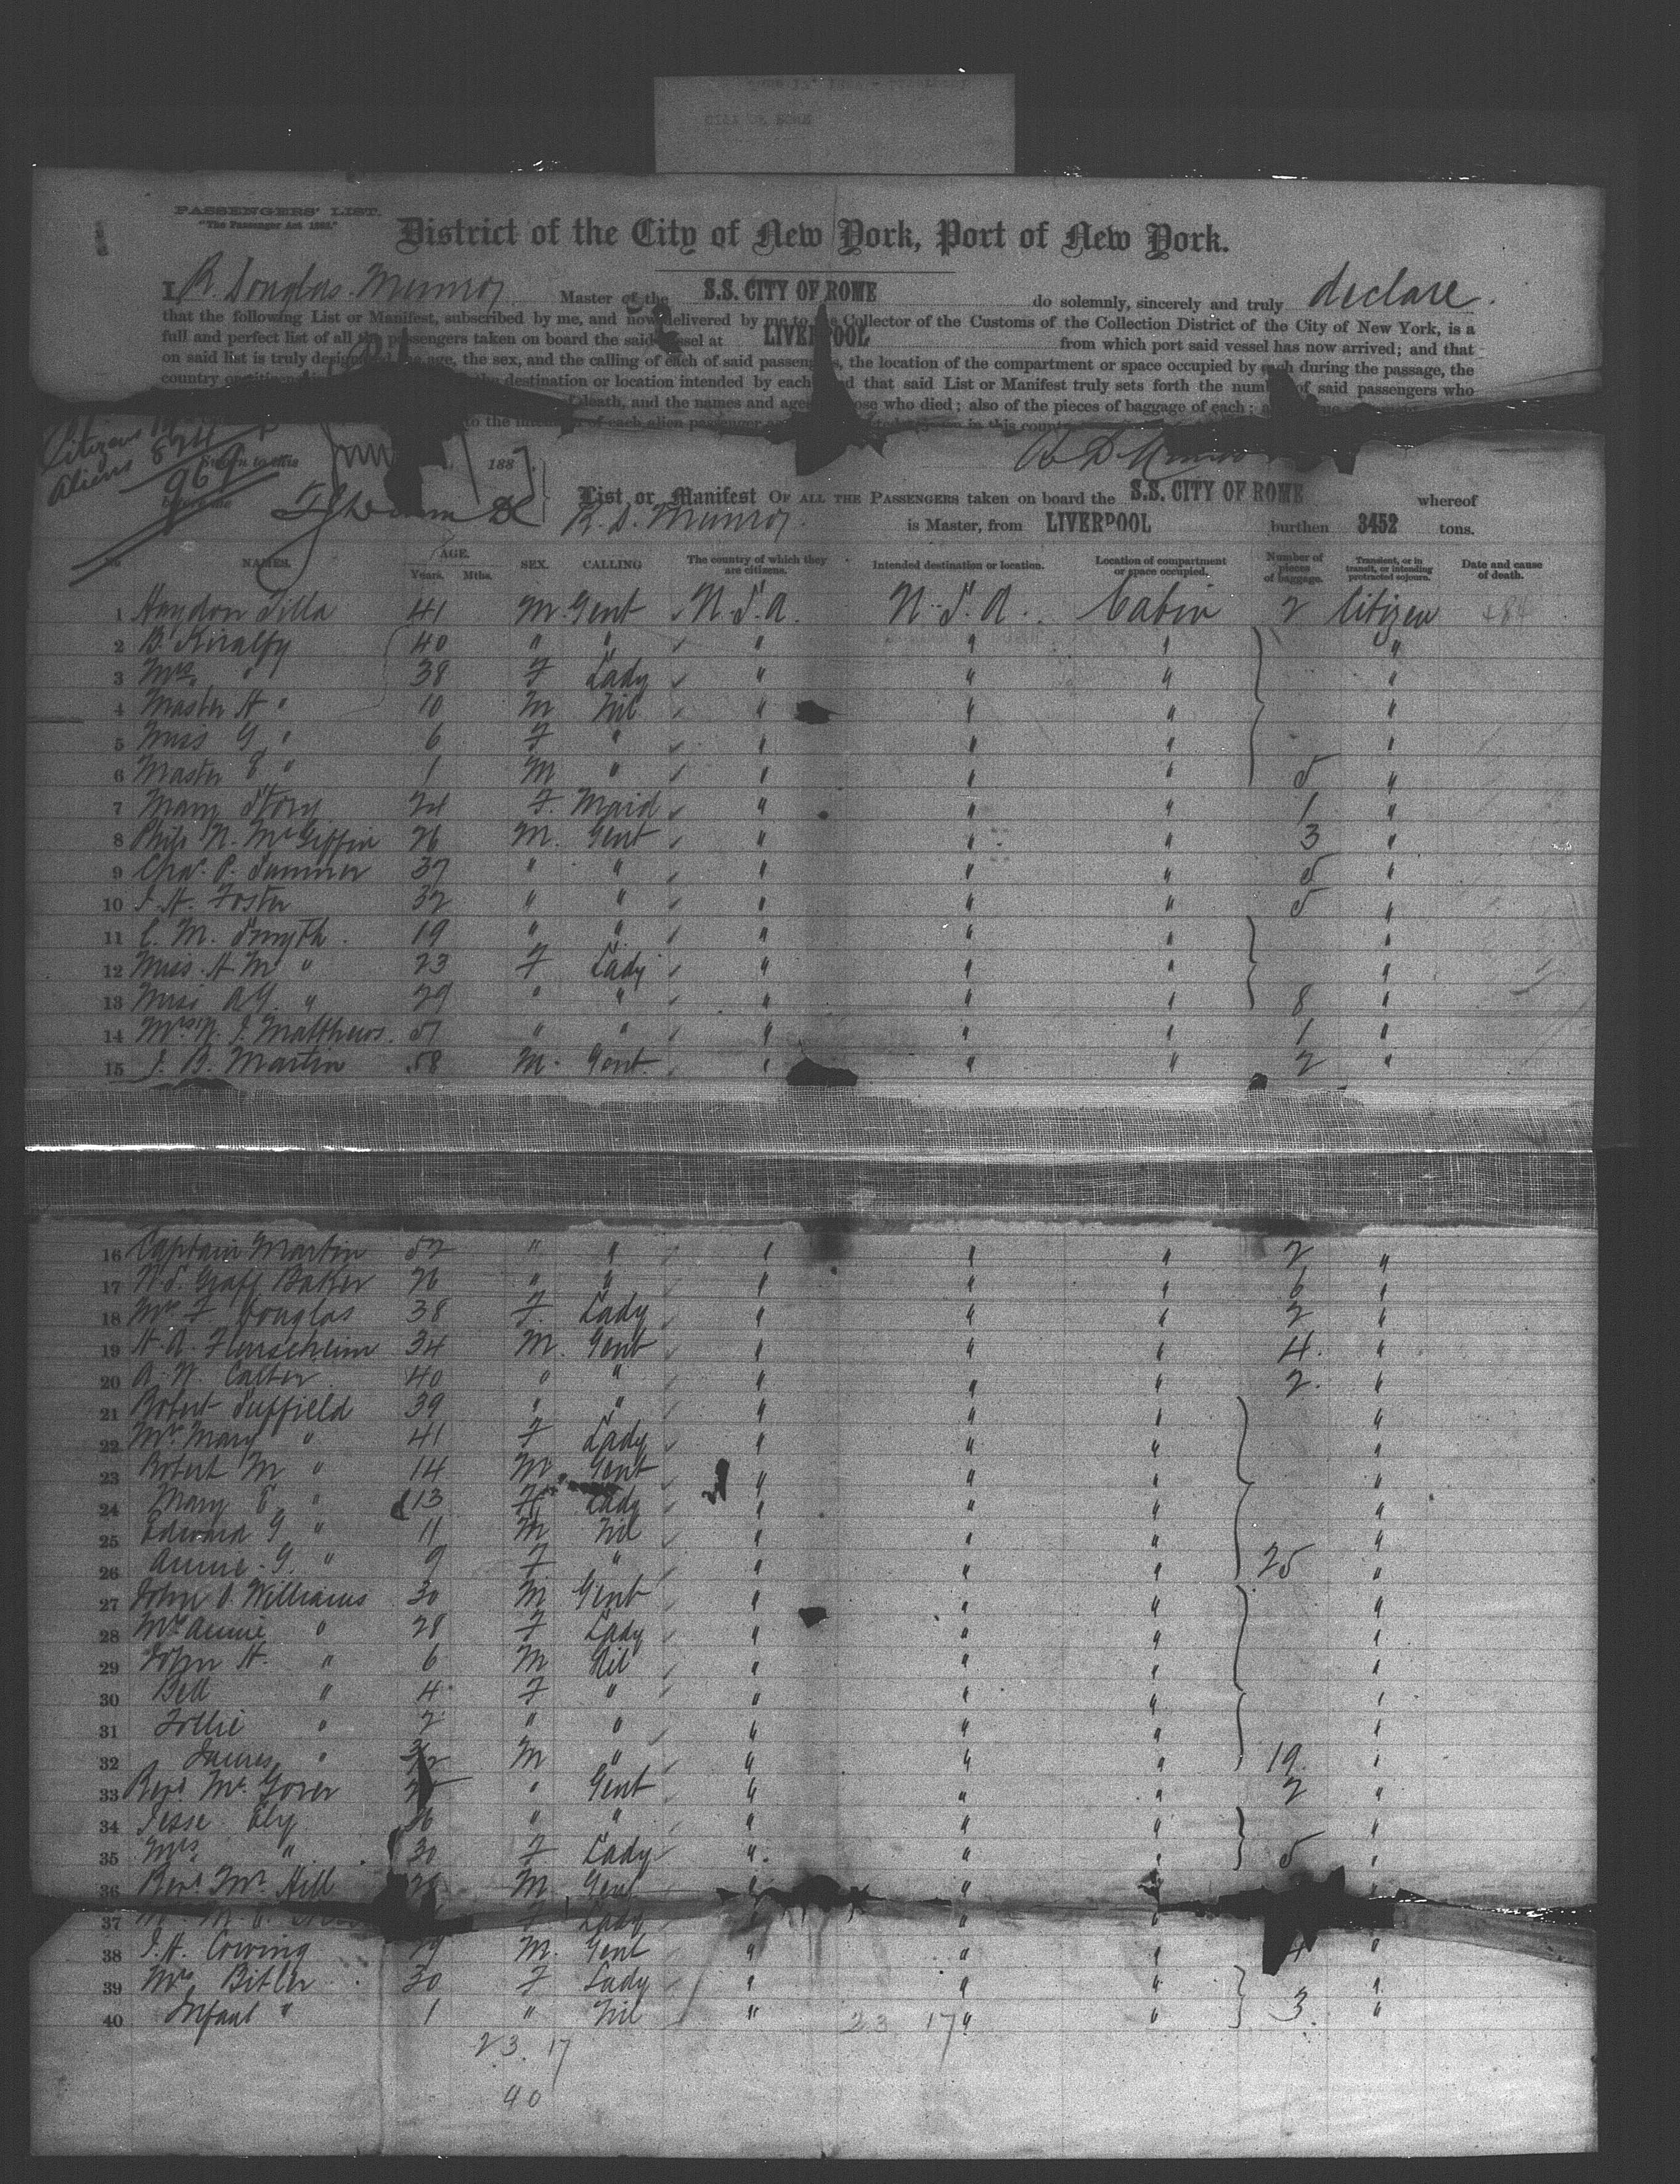 PASSENGERS' LIST.
"The Passenger Act 1882."
District of the City of New York, Port of New York.
I R. Douglas Munroy Master of the S.S. CITY OF ROME do solemnly, sincerely and truly declare.
that the following List or Manifest, subscribed by me, and now delivered by me to the Collector of the Customs of the Collection District of the City of New York, is a
full and perfect list of all the passengers taken on board the said vessel at LIVERPOOL from which port said vessel has now arrived; and that
on said list is truly designated the age, the sex, and the calling of each of said passengers, the location of the compartment or space occupied by each during the passage, the
country or the destination or location intended by each and that said List or Manifest truly sets forth the number of said passengers who
death, and the names and ages those who died; also of the pieces of baggage of each;
to the of each alien passenger in this
Citizens
Aliens 824
969
Sworn to this 188
List or Manifest OF ALL THE PASSENGERS taken on board the S.S. CITY OF ROME whereof
R. D. Munroy is Master, from LIVERPOOL burthen 3452 tons.
No NAMES. AGE. Years. Mths. SEX. CALLING The country of which they are citizens. Intended destination or location. Location of compartment or space occupied. Number of pieces of baggage. Transient, or in transit, or intending protracted sojourn. Date and cause of death.
1 Haydon Tilla 41 M. Gent U.S.A. U.S.A. Cabin 2 Citizen
2 B. Kiralfy 40 " " " " " "
3 Mrs " 38 F Lady " " " "
4 Master H " 10 M Nil " " " "
5 Miss G " 6 F " " " " "
6 Master E " 1 M " " " " 5 "
7 Mary Story 24 F. Maid " " " 1 "
8 Philo N. McGiffin 26 M. Gent " " " 3 "
9 Chas. P. Sumner 37 " " " " " 5 "
10 J. H. Foster 32 " " " " " 5 "
11 C. M. Smyth. 19 " " " " " "
12 Miss H M " 23 F Lady " " " "
13 Miss A G. " 29 " " " " " 8 "
14 Mrs N. J. Matthews. 51 " " " " " 1 "
15 J. B. Martin 58 M. Gent " " " 2 "
16 Captain Martin 52 " " " " " 2 "
17 W. S. Graff Baker 26 " " " " " 6 "
18 Mrs F Douglas 38 F. Lady " " " 2 "
19 H. A. Florscheim 34 M. Gent " " " 4. "
20 A. W. Calter 40 " " " " " 2. "
21 Robert Suffield 39 " " " " " "
22 Mrs Mary " 41 F Lady " " " "
23 Robert M " 14 M Gent " " " "
24 Mary E " 13 F Lady " " " "
25 Edward G " 11 M Nil " " " "
26 Annie G. " 9 F " " " " 25 "
27 John O Williams 30 M Gent " " " "
28 Mrs Annie " 28 F Lady " " " "
29 John H. " 6 M Nil " " " "
30 Bell " 4 F " " " " "
31 Tollie " 2 " " " " " "
32 James " M " " " " 19 "
33 Revd Mr. Gorer " Gent " " " 2 "
34 Jesse Ely 36 " " " " " "
35 Mrs " 30 F Lady " " " 5 "
36 Revd Mr Hill M Gent " " "
37 F Lady " " "
38 J. H. Cowing 29 M. Gent " " " 4 "
39 Mrs Bitler 30 F Lady " " " "
40 Infant " 1 " Nil " " " 3. "
23 17
23. 17
40